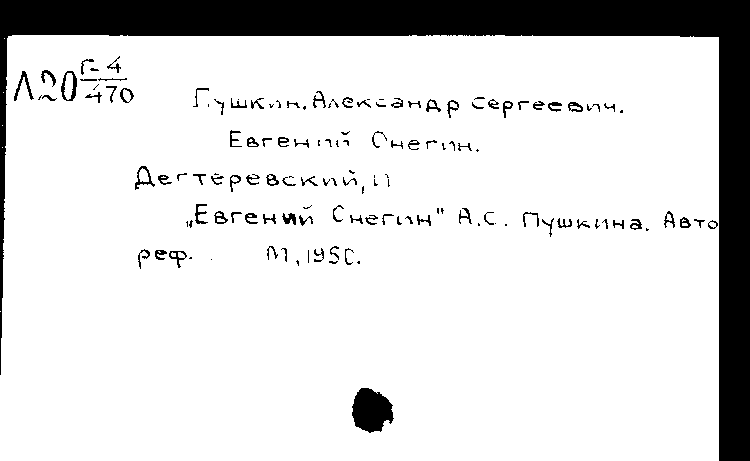 Л20 Г-4/470
Пушкин, Александр Сергеевич.
Евгений Онегин.
Дегтеревский, И
„Евгений Онегин" А.С. Пушкина. Авто
реф. М., 1950.